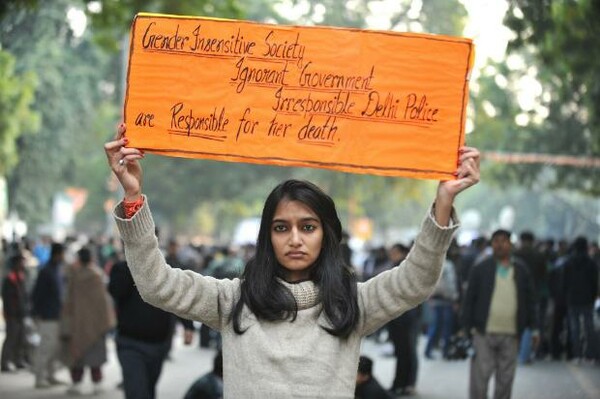 Gender Insensitive Society
Ignorant Government
Irresponsible Delhi Police
are Responsible for her death.